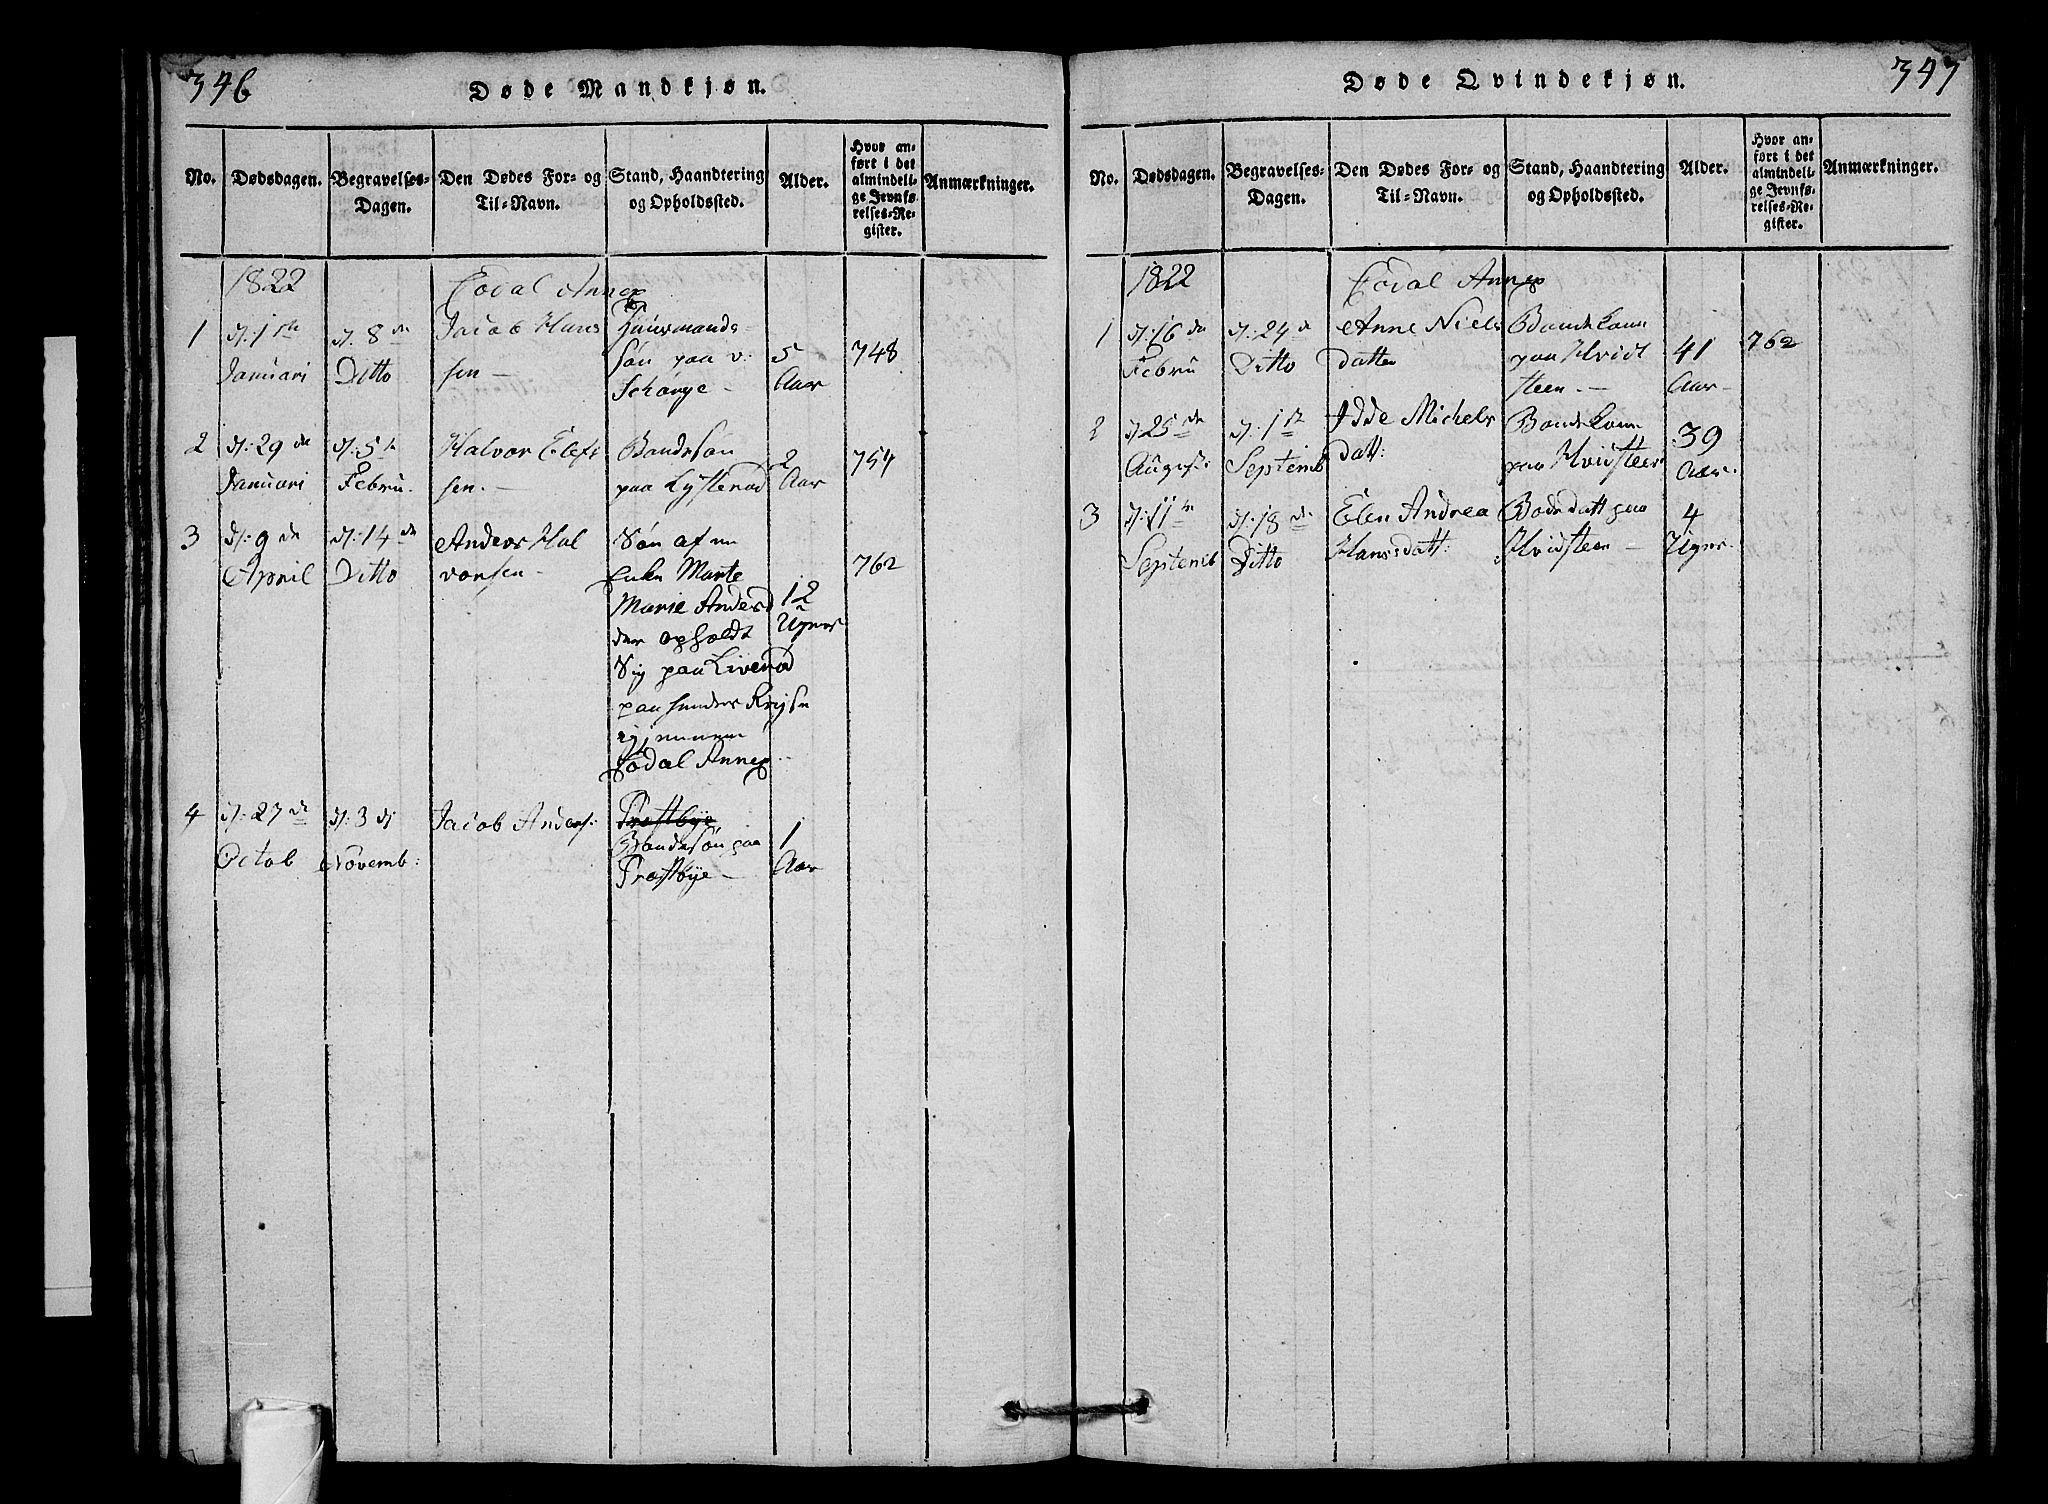 346
Døde Mandkjøn.
No.
Dødsdagen.
Begravelses-
Dagen.
Den Dødes For- og
Til-Navn.
Stand, Haandtering
og Opholdssted.
Alder.
Hvor an-
ført i det
almindeli-
ge Jevnfø-
relses-Re-
gister.
Anmærkninger.
1822
Fodal Annex
1
d: 1ste
Januari
d: 8de
Ditto
Jacob Hans
sen -
Huusmands-
søn paa v:
Schånge -
5
Aar
748
2
d: 29de
Januari
d: 5te
Febru.
Halvor Elefs
sen. -
Bondesøn
paa Lysterød
2
Aar
754
3
d: 9de
April
d: 14de
Ditto
Anders Hal
vorsen -
Søn af en
Enke Marte
Marie Andersd
der opholdt
Sig paa Liverød
paa
Fodal Annex
12
Uger
762
4
d: 27de
Octob
d: 3di
Novemb:
Jacob Anders:
Prestbye
Bondesøn paa
Prestbye -
1
Aar
347
Døde Qvindekjøn.
No.
Dødsdagen.
Begravelses-
Dagen.
Den Dødes For- og
Til-Navn.
Stand, Haandtering
og Opholdssted.
Alder.
Hvor an-
ført i det
almindeli-
ge Jevnfø-
relses-Re-
gister.
Anmærkninger.
1822
Fodal Annex
1
d: 16de
Febru
d: 24de
Ditto
Anne Niels
datter
Bondekone
paa Hvidt
steen. -
41
Aar
762
2
d: 25de
August:
d: 1ste
Septemb
Idde Michels
datt:
Bondekone
paa Hvidsteen
39
Aar.
3
d: 11te
Septemb
d: 18de
Ditto
Elen Andrea
Hansdatt:
Bondedatt paa
Hvidsteen -
4
Uger.